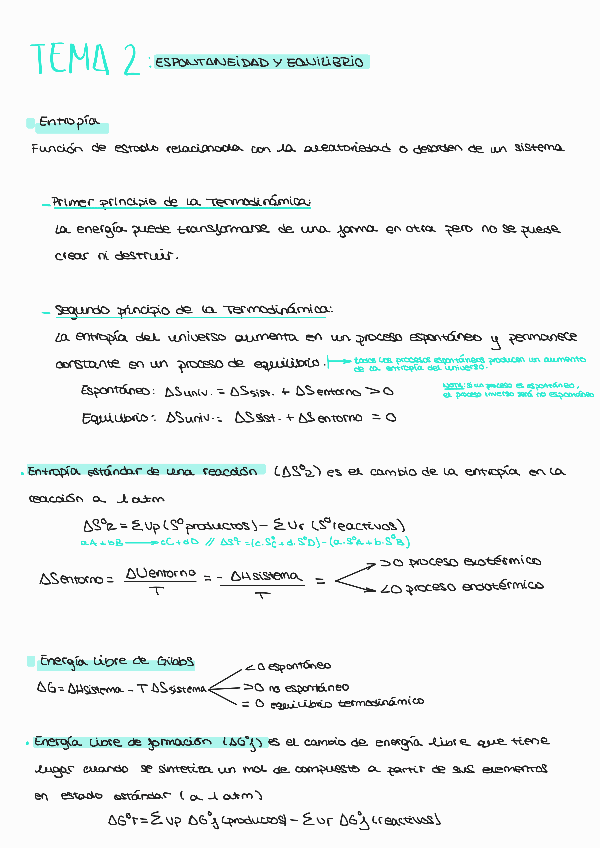 TEMA 2: ESPONTANEIDAD Y EQUILIBRIO
Entropía
Función de estado relacionada con la aleatoriedad o desorden de un sistema
- Primer principio de la Termodinámica:
La energía puede transformarse de una forma en otra pero no se puede
crear ni destruir.
- Segundo principio de la Termodinámica:
La entropía del universo aumenta en un proceso espontáneo y permanece
constante en un proceso de equilibrio. → todos los procesos espontáneos producen un aumento
de la entropía del universo.
Espontáneo: ΔSuniv. = ΔSsist. + ΔSentorno > 0
NOTA: si un proceso es espontáneo,
el proceso inverso será no espontáneo
Equilibrio: ΔSuniv.= ΔSsist. + ΔSentorno = 0
· Entropía estándar de una reacción (ΔS°r) es el cambio de la entropía en la
reacción a 1 atm
ΔS°r = Σ νp (S° productos) - Σ νr (S° reactivos)
aA + bB → cC + dD // ΔS°r = (c·S°C + d·S°D) - (a·S°A + b·S°B)
ΔSentorno = ΔUentorno / T = - ΔHsistema / T =
>0 proceso exotérmico
<0 proceso endotérmico
Energía libre de Gibbs
ΔG = ΔHsistema - T ΔSsistema
<0 espontáneo
>0 no espontáneo
= 0 equilibrio termodinámico
· Energía libre de formación (ΔG°f) es el cambio de energía libre que tiene
lugar cuando se sintetiza un mol de compuesto a partir de sus elementos
en estado estándar (a 1 atm)
ΔG°r = Σ νp ΔG°f (productos) - Σ νr ΔG°f (reactivos)